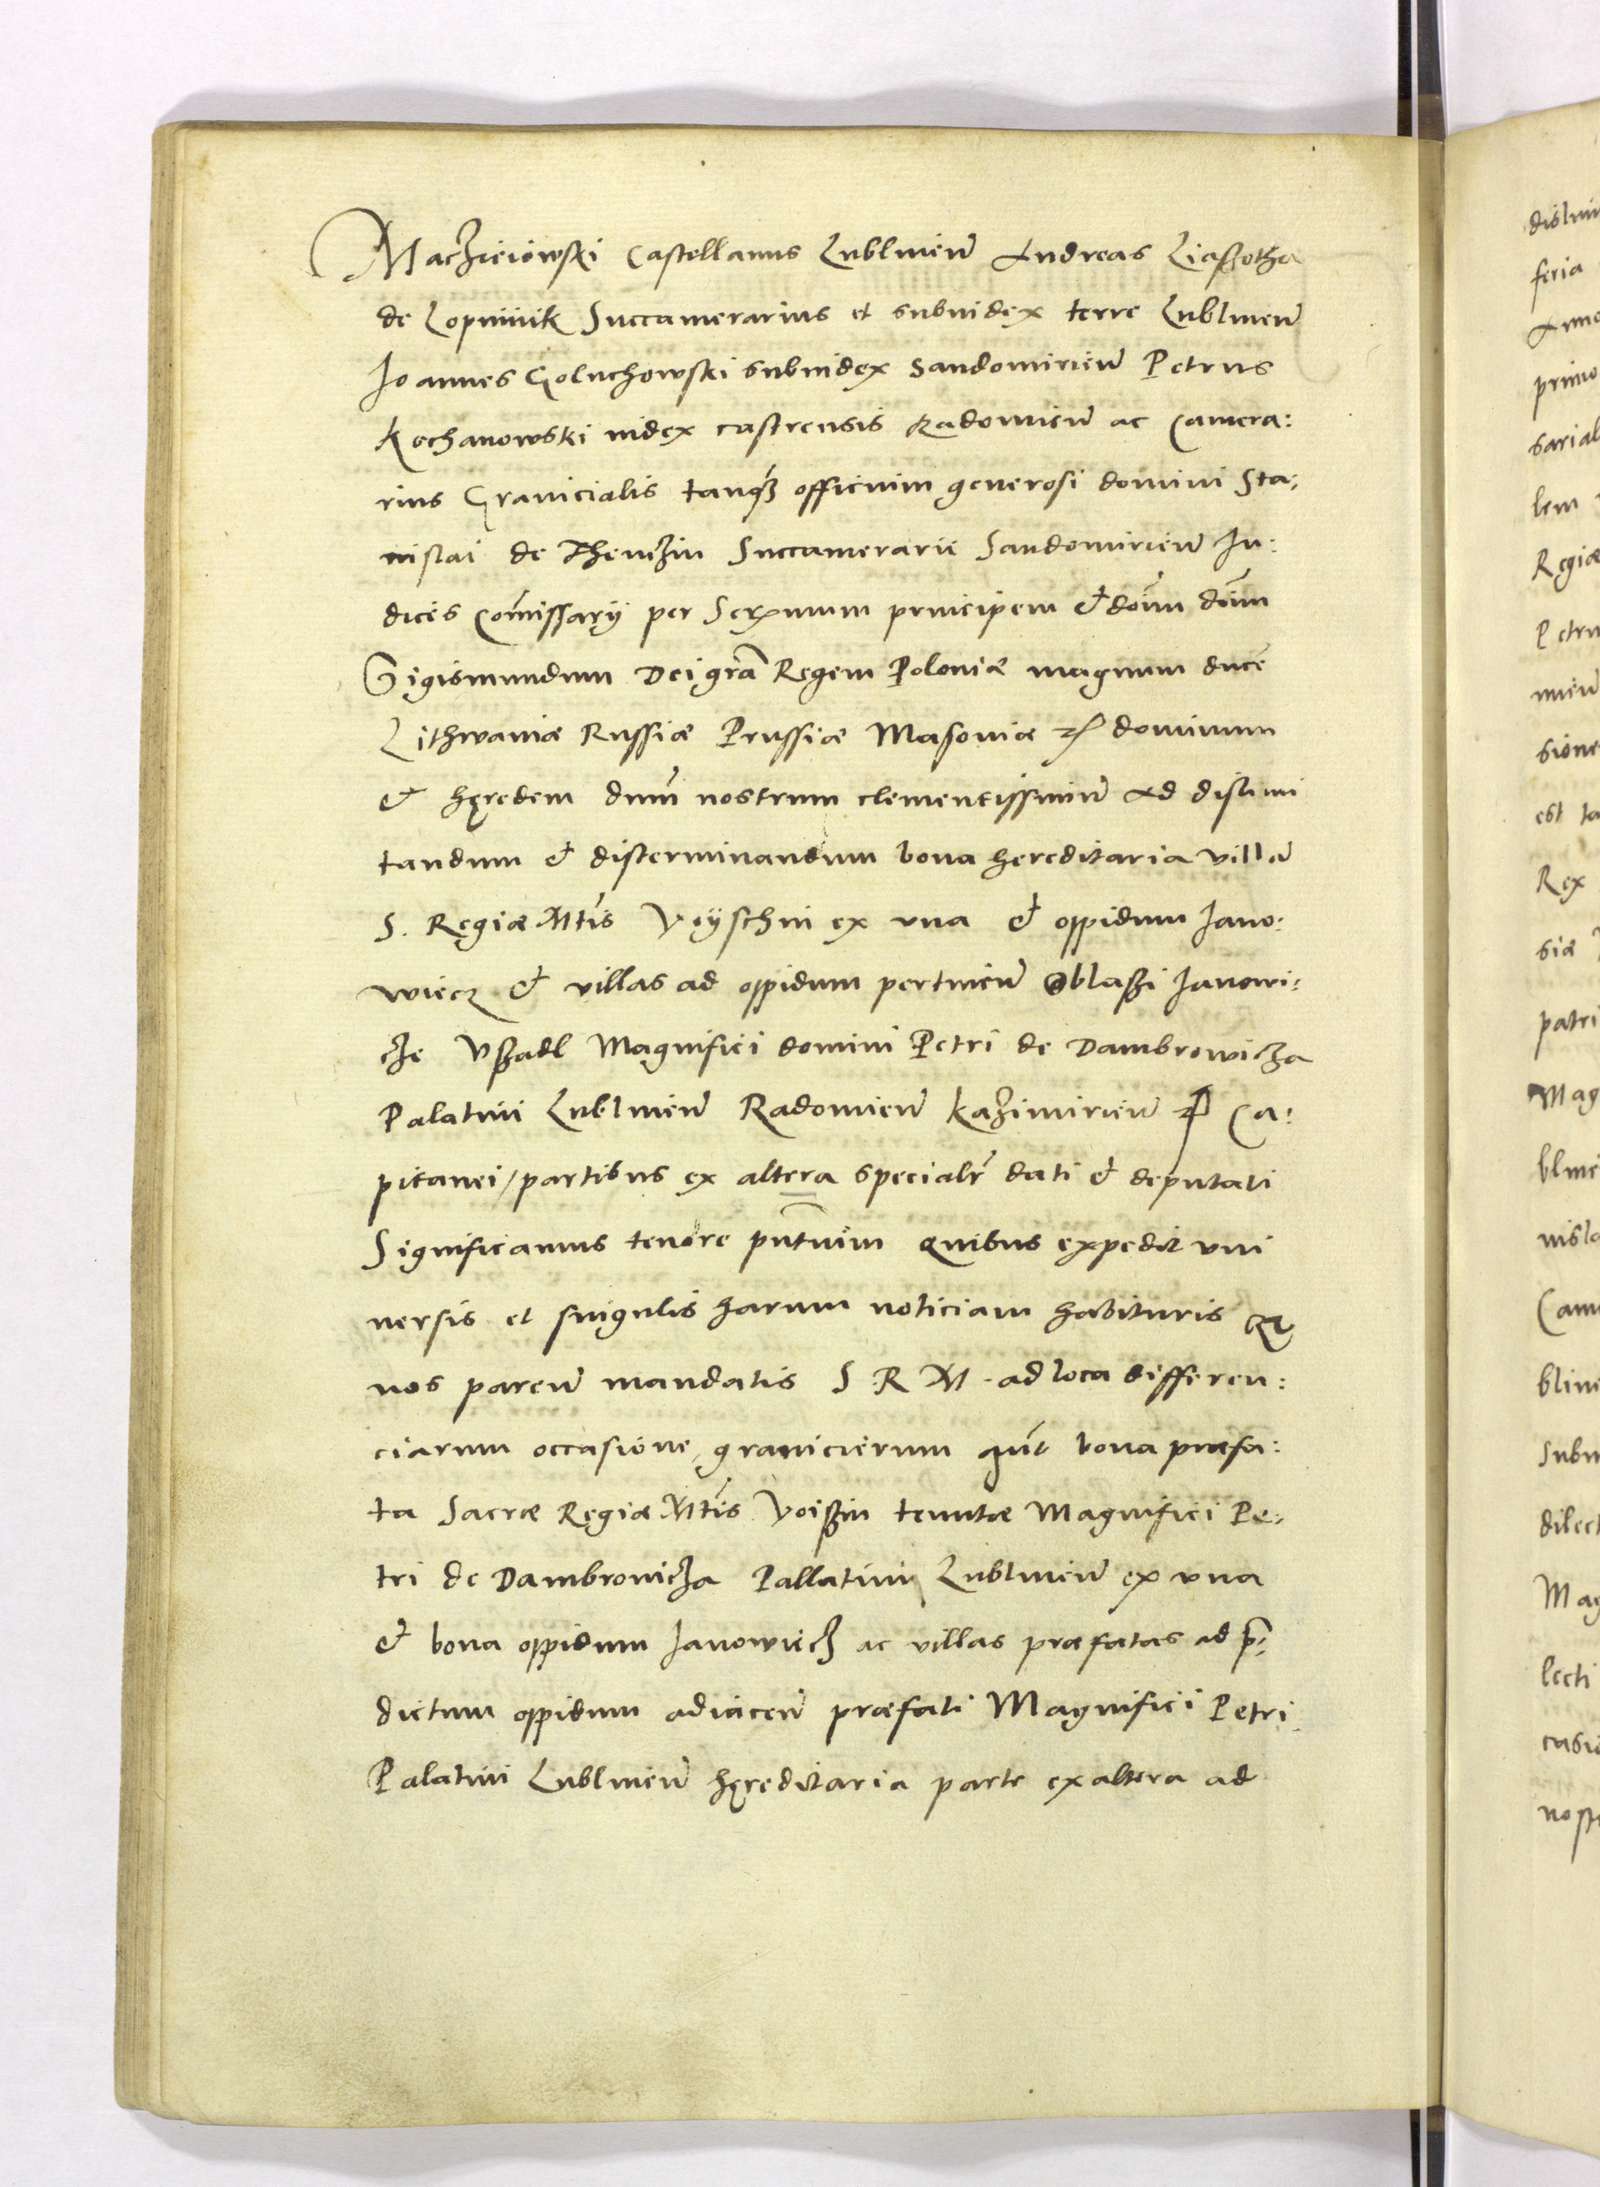 Maczieiowski Castellanus Lublineñ Andreas Liassotha
de Lopiinik Succamerarius et subiudex terre Lublineñ
Ioannes Goluchowski subiudex Sandomirieñ Petrus
Kochanowski iudex castrensis Radomieñ ac Camera:
rius Granicialis tanq3 officium generosi domini Sta:
nislai de Thenczin Succamerarii Sandomirieñ Iu:
dices Com̃issarij per Serx̃mum principem & dom̃ dñm
Sigismundum Dei gr̃a Regem Poloniæ magnum ducẽ
Lithwaniæ Russiæ Prussiæ Masoviæ zc̃ dominum
& hęredem dnm̃ nostrum clementissimũ ad dislimi
tandum & disterminandum bona hereditaria villã
S. Regiæ Mtis̃ Voyschin ex una & oppidum Iano:
wiecz & villas ad oppidum pertineñ Oblassi Ianowi:
cze Vssadl Magnifici domini Petri de Dambrowicza
Palatini Lublineñ Radomieñ Kazimirieñ zc̃ Ca:
pitanei / partibus ex altera specialr̃ dati & deputati
Significamus tenore pñtuim quibus expedit uni
versis et singulis harum noticiam habituris Qz
nos pareñ mandatis S R M. ad loca differen:
ciarum occasione granicierum int̃ bona præfa:
ta Sacræ Regiæ Mtis̃ Voissin tenutæ Magnifici Pe:
tri de Dambrovicza Pallatini Lublineñ ex una
& bona oppidum Ianowiecz ac villas præfatas ad p̃:
dictum oppidum adiaceñ præfati Magnifici Petri
Palatini Lublineñ hęreditaria parte ex altera ad
dislimi
feria
Anno
primo
sarial
lem
Regiæ
Petru
mieñ
sione
est ta
Rex
siæ
patri
Mag
bline
nisla
Cam
blin
Subiu
dilect
Mag
lecti
casio
nostr